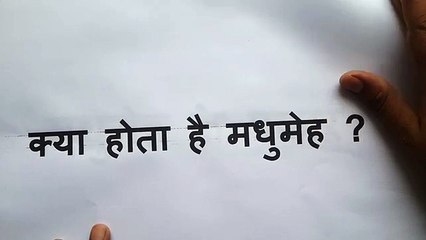 क्या होता है मधुमेह ?